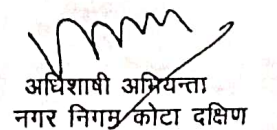 अधिशाषी अभियन्ता
नगर निगम कोटा दक्षिण